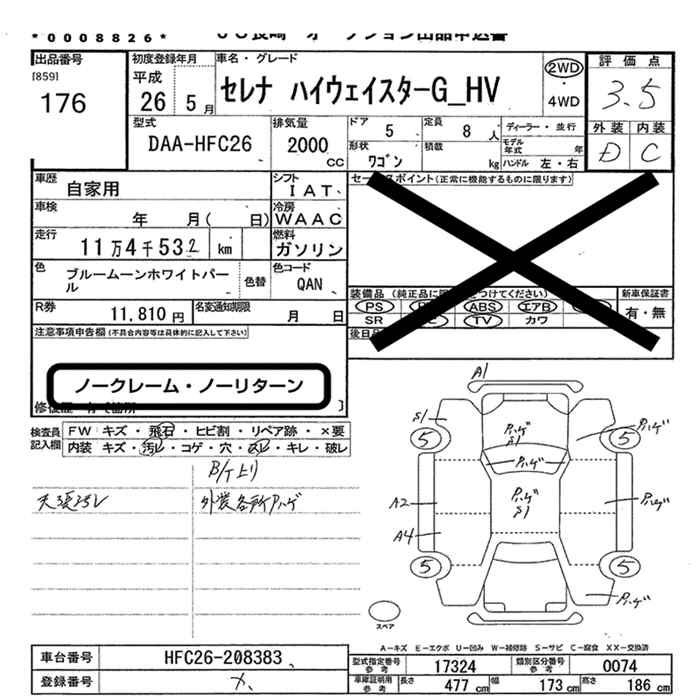 *0008826*
出品番号
[859]
176
初度登録年月
平成
26 5月
車名・グレード
セレナ ハイウェイスターG_HV
2WD
・
4WD
評価点
3.5
外装 内装
D C
型式
DAA-HFC26
排気量
2000
CC
ドア 5
定員 8 人
形状 ワゴン
積載 kg
ディーラー・並行
モデル年式 年
ハンドル 左・右
車歴 自家用
シフト IAT
車検 年 月( 日)
冷房 WAAC
走行 11万4千532 km
燃料 ガソリン
色 ブルームーンホワイトパール
色替
色コード QAN
R券 11,810円
名変通知期限 月 日
セールスポイント(正常に機能するものに限ります)
装備品
PS ABS エアB
SR TV カワ
新車保証書
有・無
注意事項申告欄(不具合内容等は具体的に記入して下さい)
ノークレーム・ノーリターン
検査員記入欄
FW キズ・飛石・ヒビ割・リペア跡・×要
内装 キズ・汚レ・コゲ・穴・スレ・キレ・破レ
B/Tより
天張汚レ
外装各所ハゲ
A1
S1
ハゲ
S1
ハゲ
5
5
ハゲ
A2
ハゲ
S1
ハゲ
A4
5
5
ハゲ
スペア
A-キズ E-エクボ U-凹み W-補修跡 S-サビ C-腐食 XX-交換済
車台番号 HFC26-208383
登録番号 メ
型式指定番号 参考 17324
類別区分番号 参考 0074
車庫証明用 参考 長さ 477cm 幅 173cm 高さ 186cm